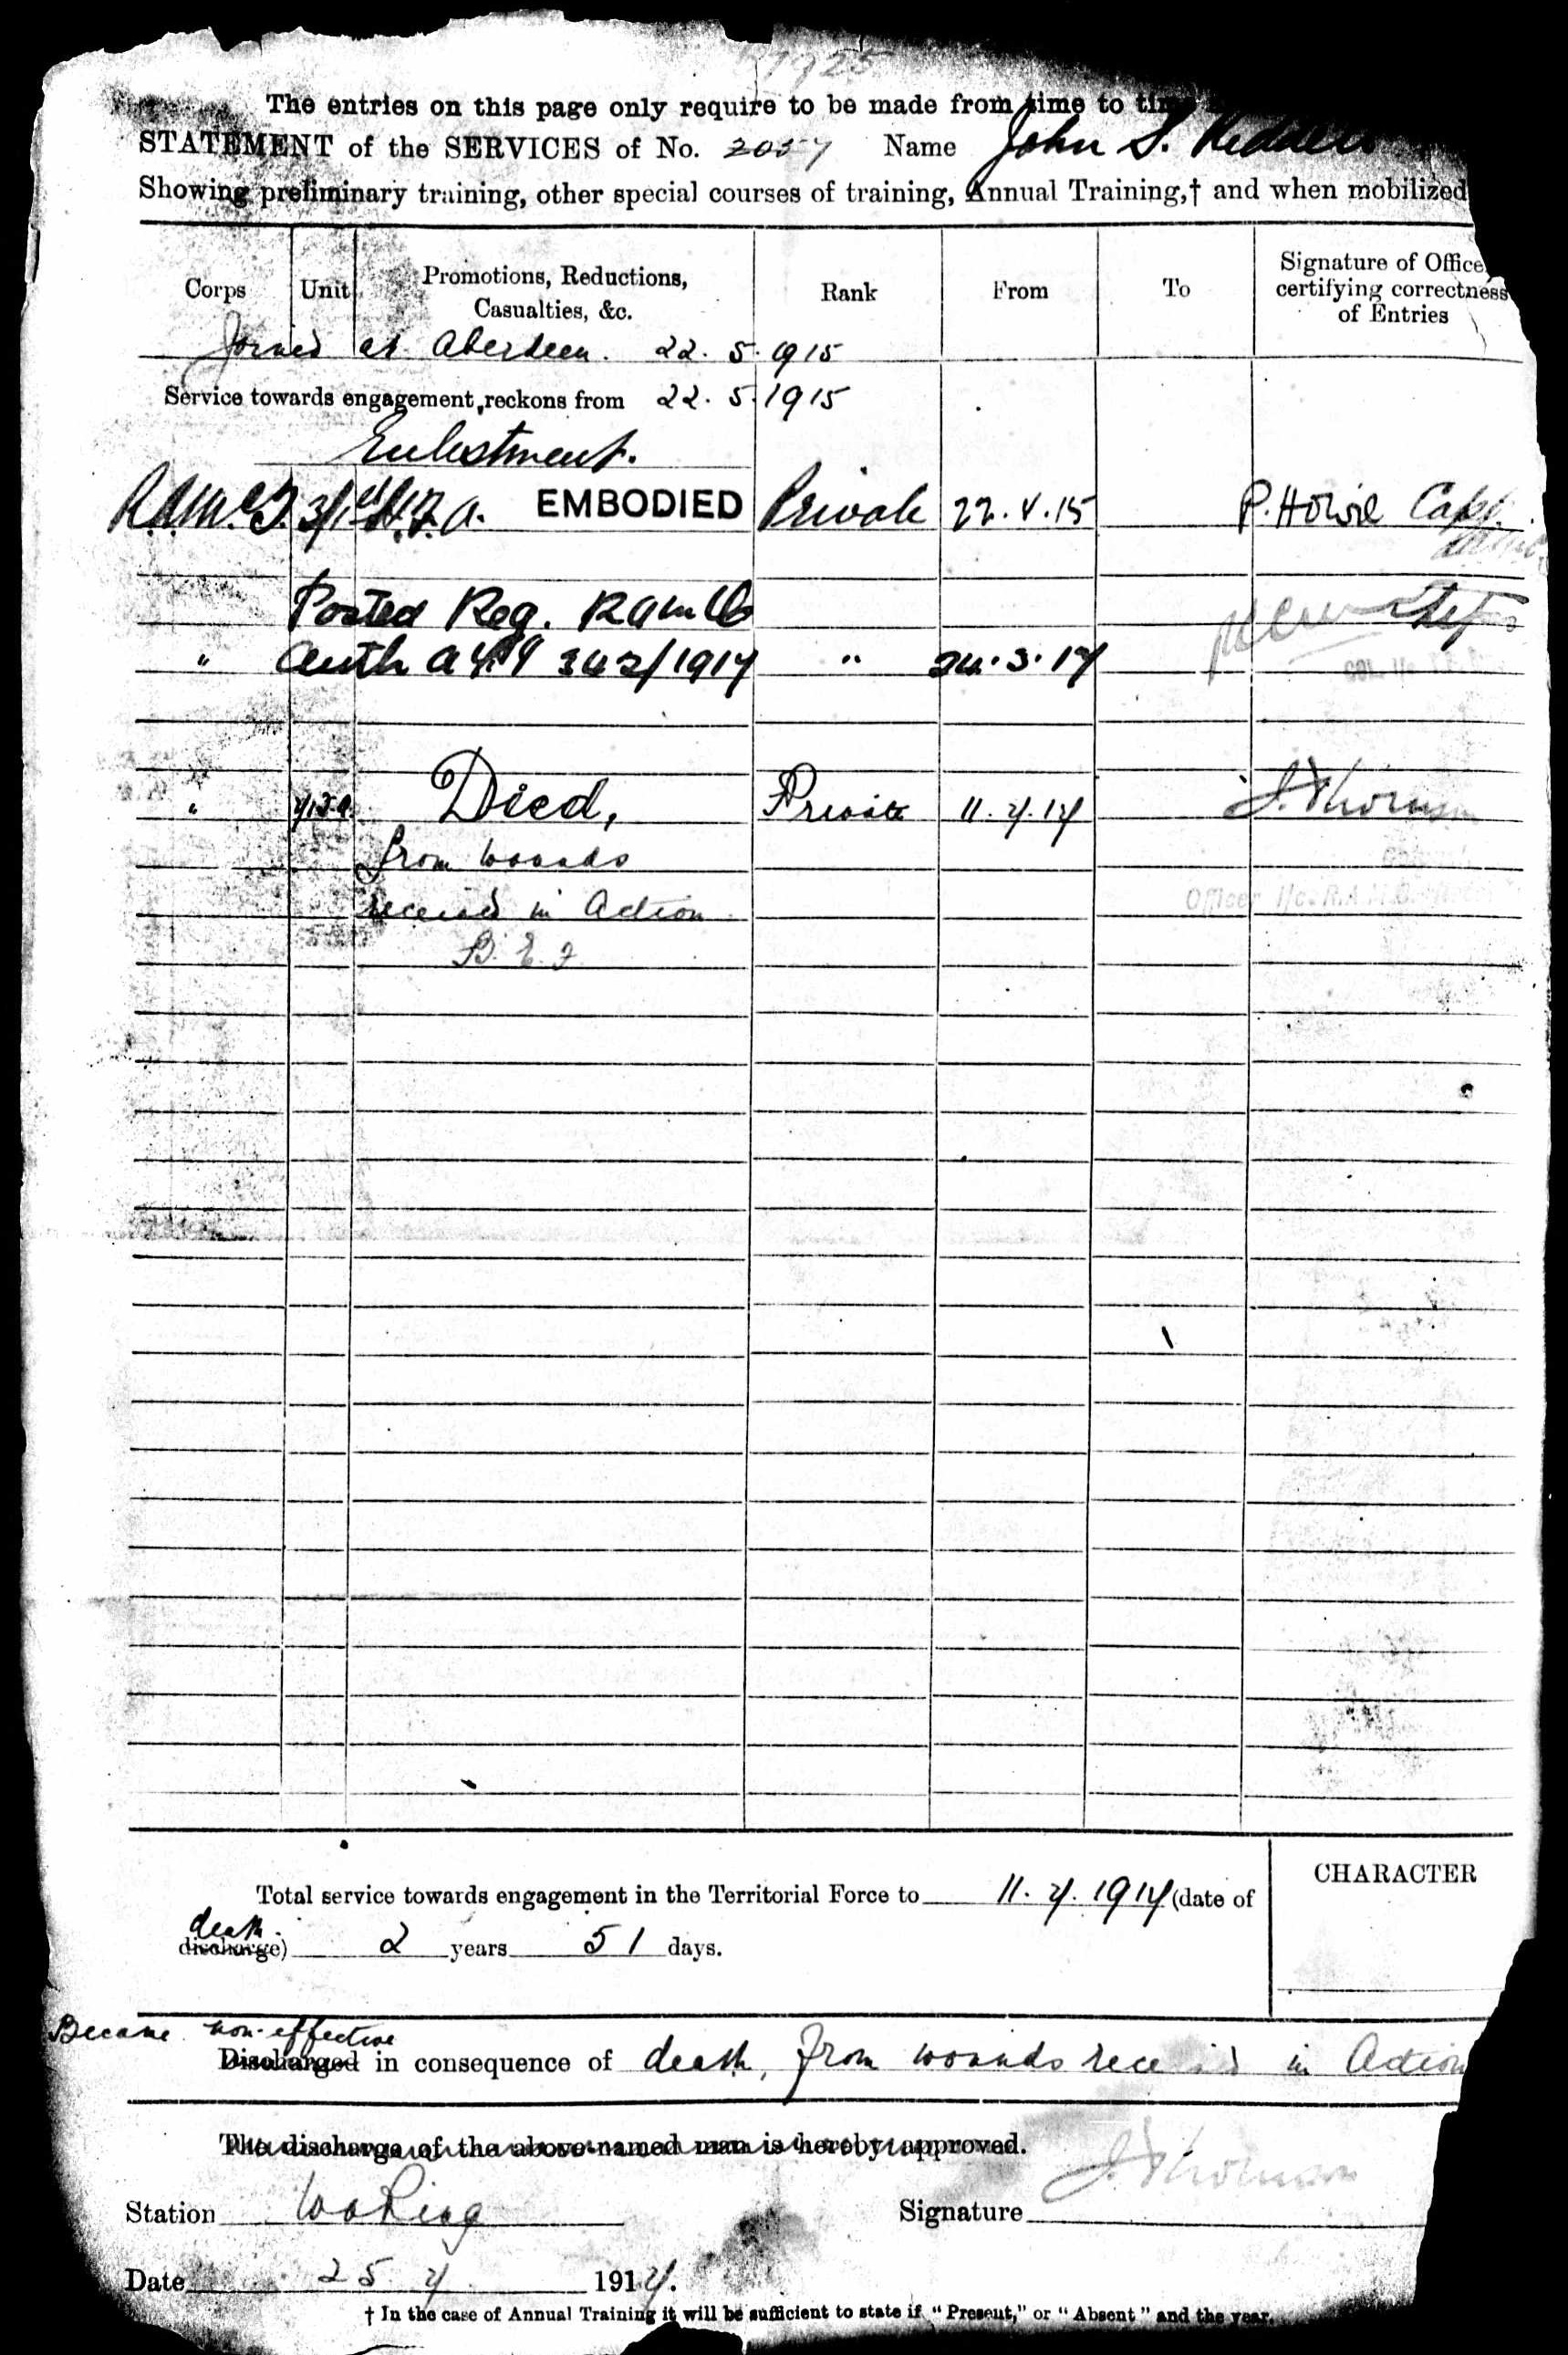 1925
The entries on this page only require to be made from time to
STATEMENT of the SERVICES of No. 2057 Name John S.
Showing preliminary training, other special courses of training, Annual Training,† and when mobilized
Corps Unit Promotions, Reductions, Casualties, &c. Rank From To Signature of Office certifying correctness of Entries
Joined at Aberdeen. 22. 5. 1915
Service towards engagement reckons from 22. 5. 1915
Enlistment.
R.A.M.C.T. 3/1st H.F.A. EMBODIED Private 22.V.15 P. Howie Capt.
Posted Reg. RAMC
" Auth 342/1917 " 24.3.17
" Died, Private 11.7.17 J. Thomson
from wounds
received in Action
Officer i/c. R.A.M.C.
B.E.F
Total service towards engagement in the Territorial Force to 11.7.1917 (date of CHARACTER
death.
discharge) 2 years 51 days.
Became non-effective
Discharged in consequence of death, from wounds received in Action
The discharge of the above-named man is hereby approved.
Station Woking Signature J. Thomson
Date 25 7 1917.
† In the case of Annual Training it will be sufficient to state if "Present," or "Absent" and the year.